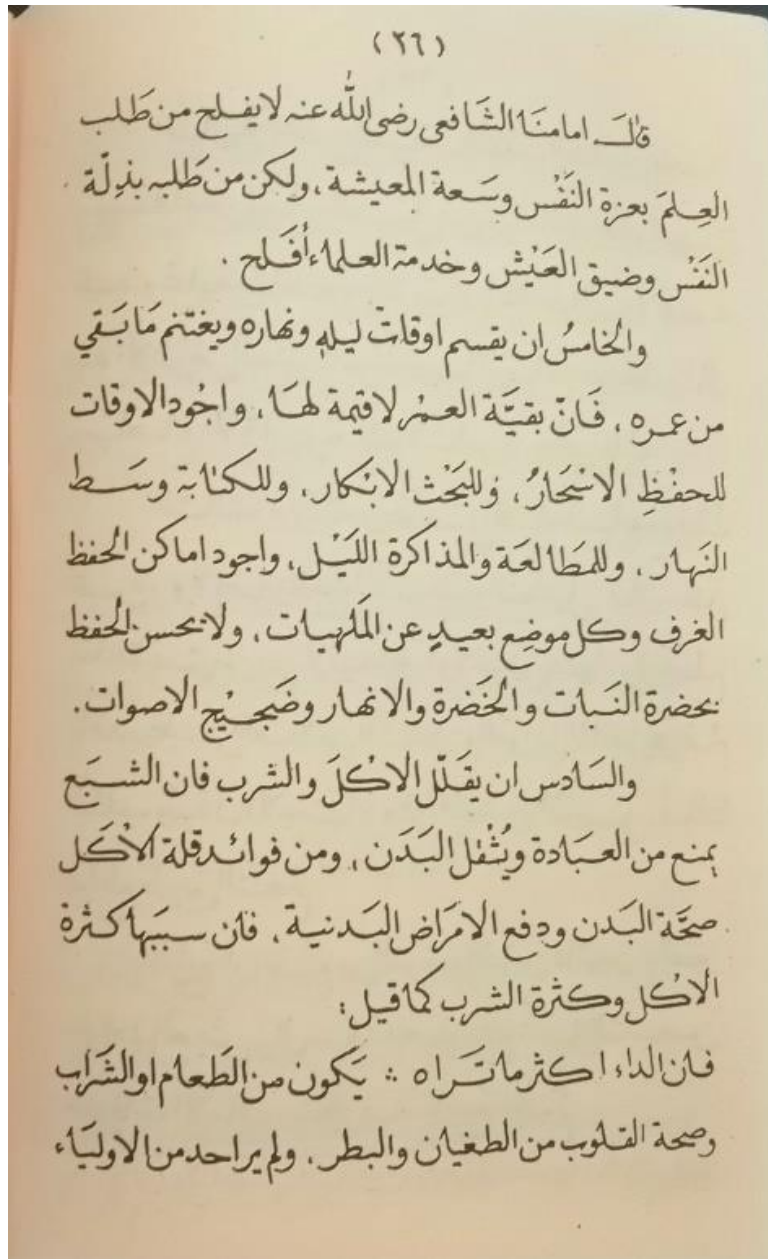 (٢٦)
قال امامنَا الشَافعى رضى اللّٰه عنه لا يفلح من طَلب
العِلمَ بعزة النَفْس وسَعة المعيشة ، ولكن من طَلبه بذِلّة
النَفْس وضيق العَيْش وخدمة العلماء أفلَح .
والخامسُ ان يقسم اوقات ليلهِ ونهاره ويغتنم مَا بَقي
من عمره ، فَانّ بقيَّة العمْر لا قيمة لهَا ، واجْود الاوقات
للحفْظِ الاسْحَارُ ، وللبَحْث الابْكار ، وللكتابة وسَط
النَهار ، وللمطَالعَة والمذاكرة الليْل ، واجود اماكن الحفظ
الغرف وكل موضِع بعيدٍ عن المَلهيات ، ولا يحسن الحفظ
بحضرة النَبات والخَضرة والانهار وضَجيْج الاصوات .
والسَادس ان يقَلّل الاكْلَ والشرب فان الشبَع
يمنع من العبَادة ويُثْقل البَدَن ، ومن فوائد قلة الأكَل
صحَّة البَدن ودفع الامرَاض البَدنية ، فان سببَها كثرة
الاكْل وكثْرة الشرب كما قيل :
فان الداء اكثر ما تَراه ∴ يَكون من الطَعام او الشَراب
وصحة القلوب من الطغيان والبطر ، ولم ير احد من الاوليَاء